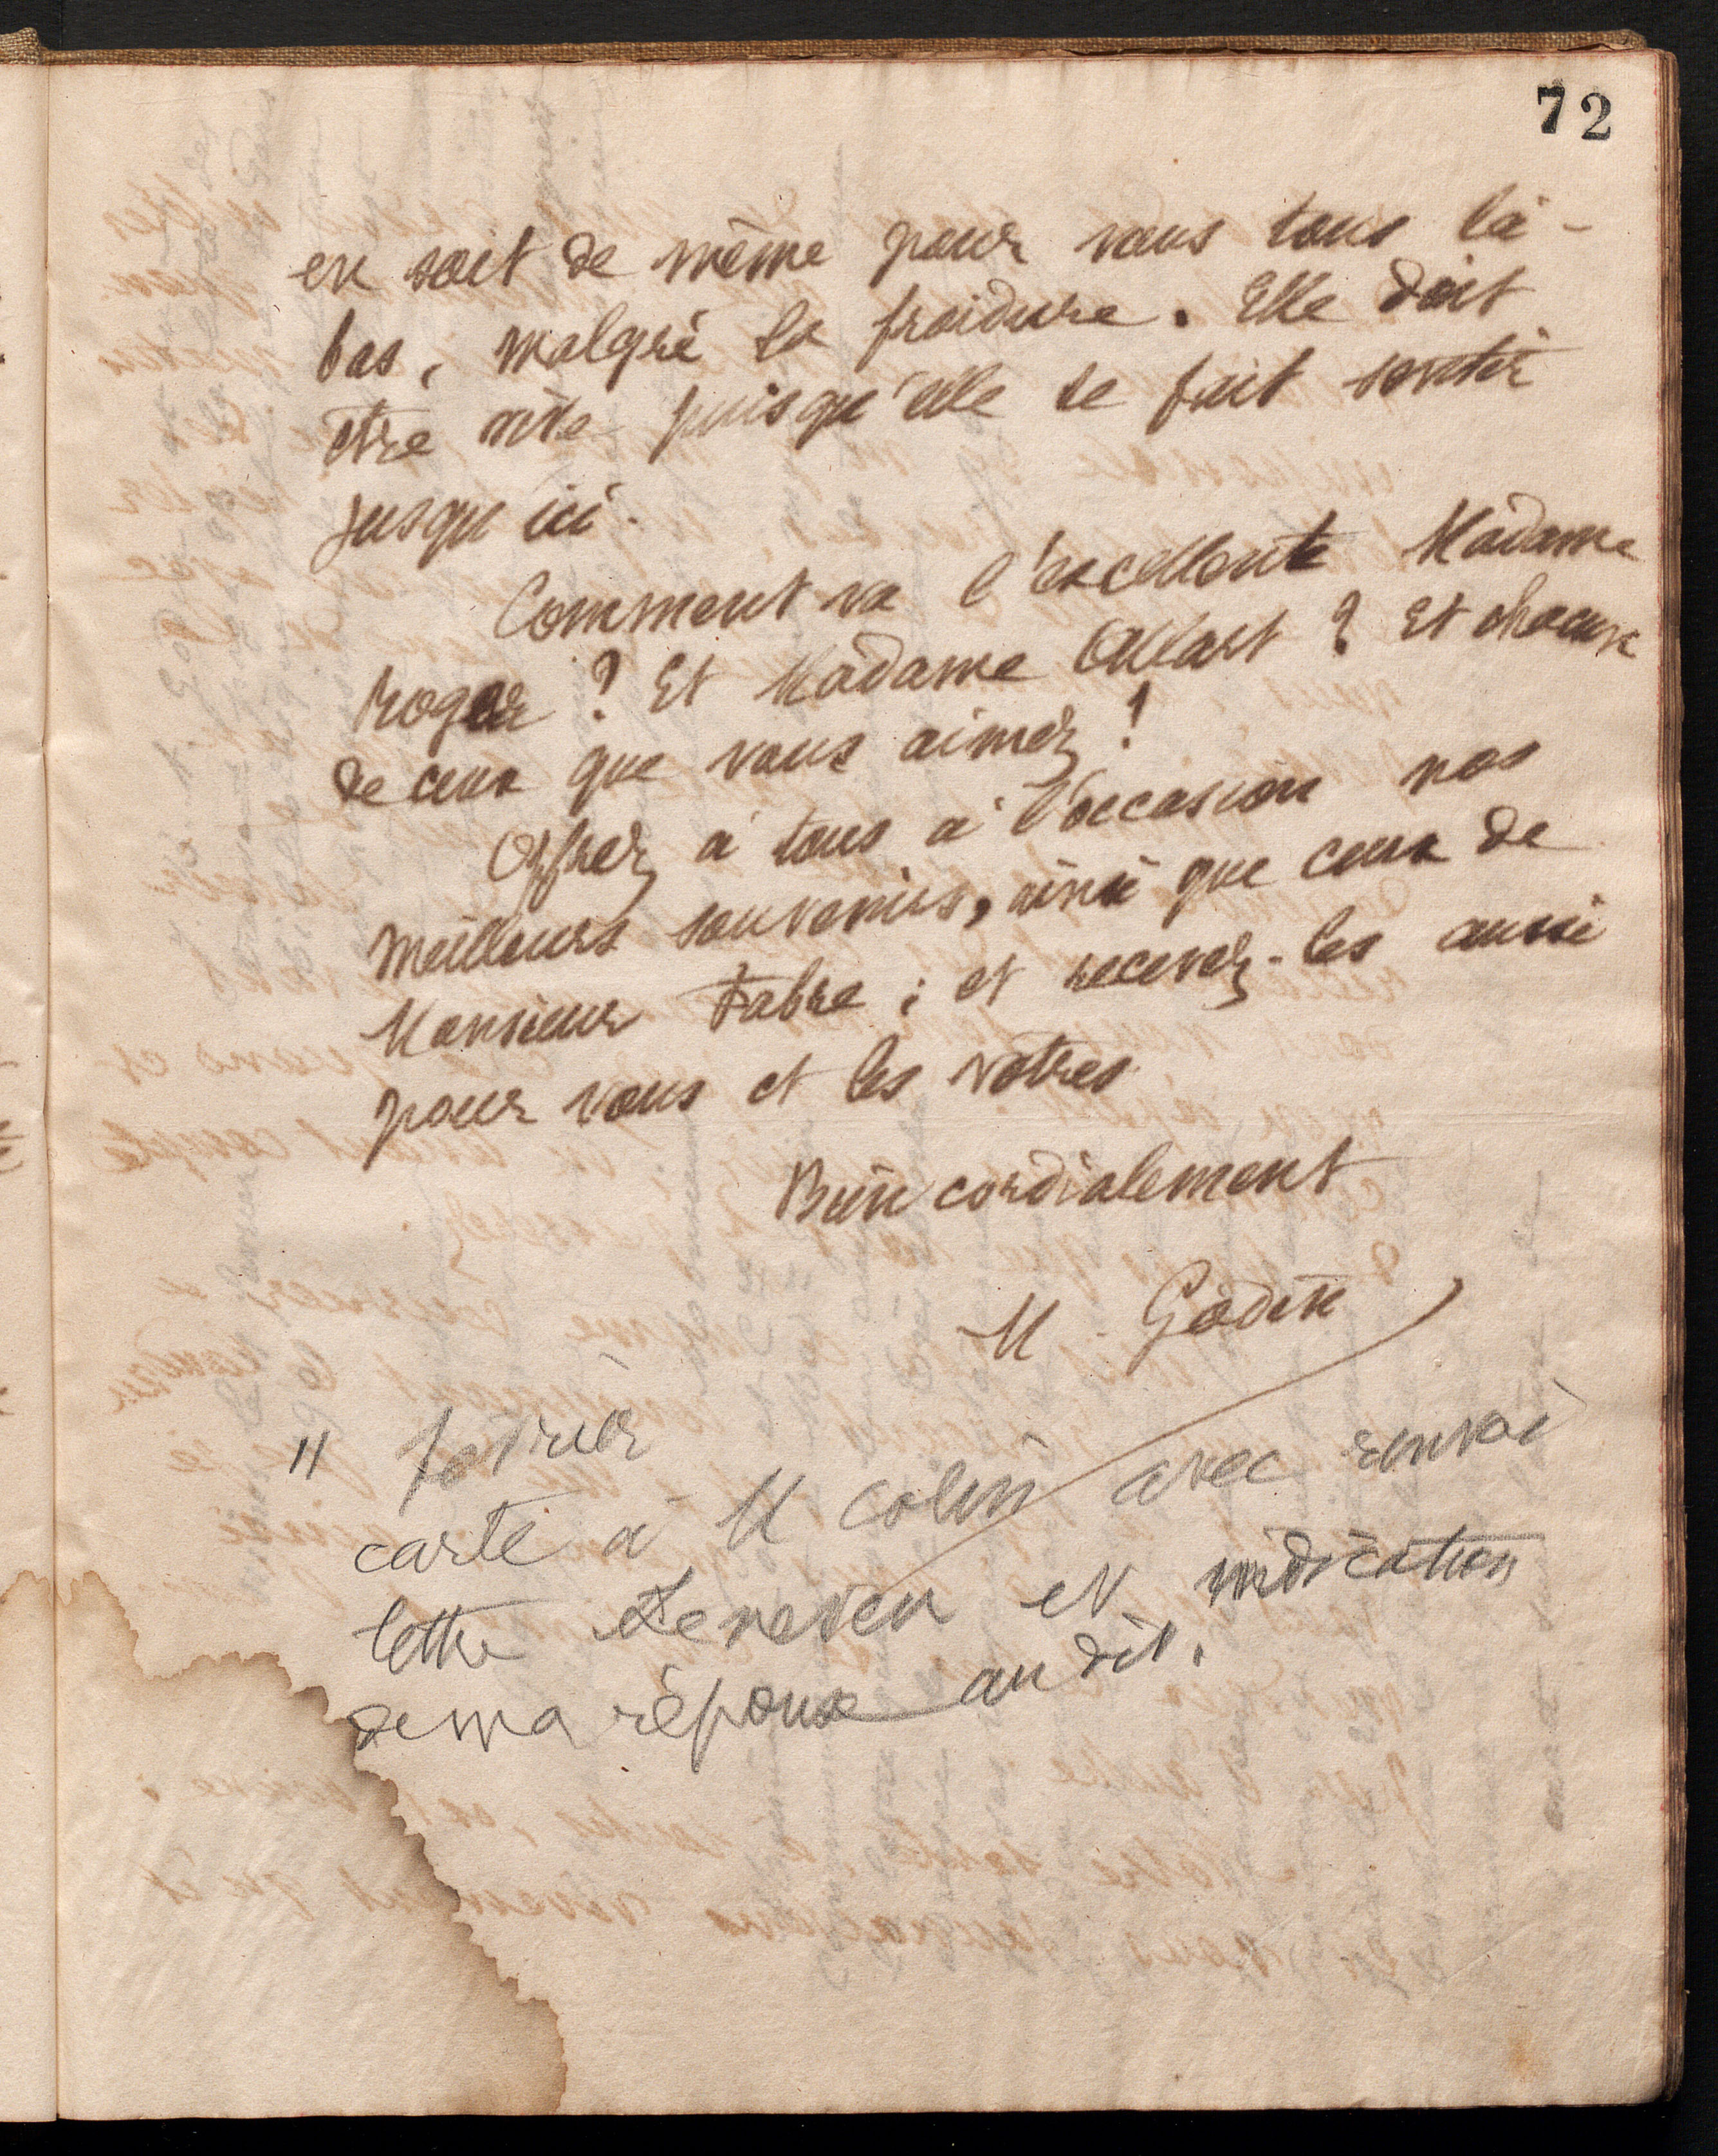 72
en soit de même pour vous tous là-
bas, malgré la froidure. Elle doit
être rude puisqu'elle se fait sentir
jusqu'ici.
Comment va l'excellente Madame
Roger ? Et Madame Allart ? Et chacun
de ceux que vous aimez !
Offrez à tous à l'occasion nos
meilleurs souvenirs, ainsi que ceux de
Monsieur Fabre ; et recevez-les aussi
pour vous et les vôtres
Bien cordialement
M. Godin
11 février
carte à M Colin avec renvoi
lettre et indication
de ma réponse au dit.